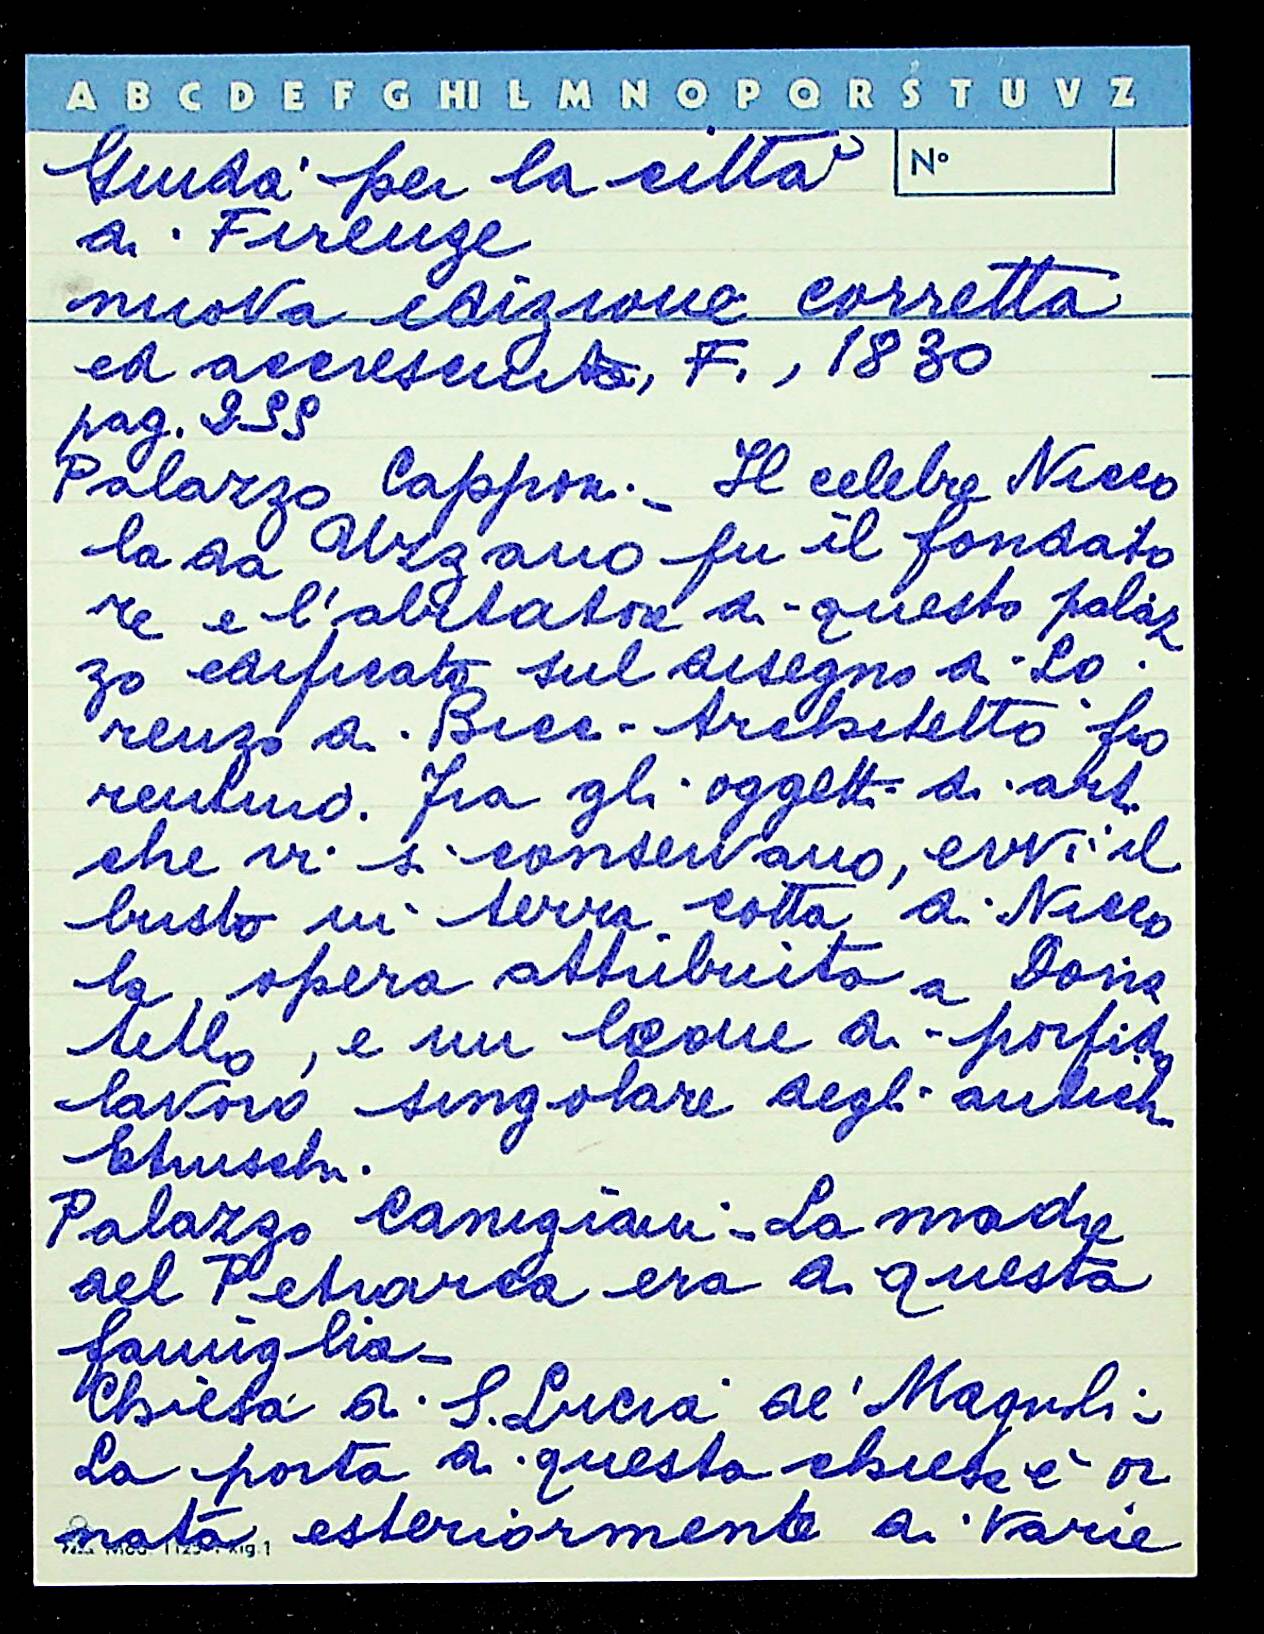 A B C D E F G HI L M N O P Q R S T U V Z
Nº
Guida per la città
di Firenze
nuova edizione corretta
ed accresciuta, F., 1830
pag.
Palazzo Capponi - Il celebre Nicco
la da Uzzano fu il fondato
re e l'abitatore di questo palaz
zo edificato sul disegno di Lo
renzo di Bicci Architetto fio
rentino. Fra gli oggetti di arte
che vi si conservano, evvi il
busto in terra cotta di Nicco
la, opera attribuita a Dona
tello, e un leone di porfido
lavoro singolare degli antichi
Etruschi.
Palazzo Canigiani - La madre
del Petrarca era di questa
famiglia -
Chiesa di S. Lucia de' Magnoli -
La porta di questa chiesa è or
nata esteriormente di varie
Rig. 1